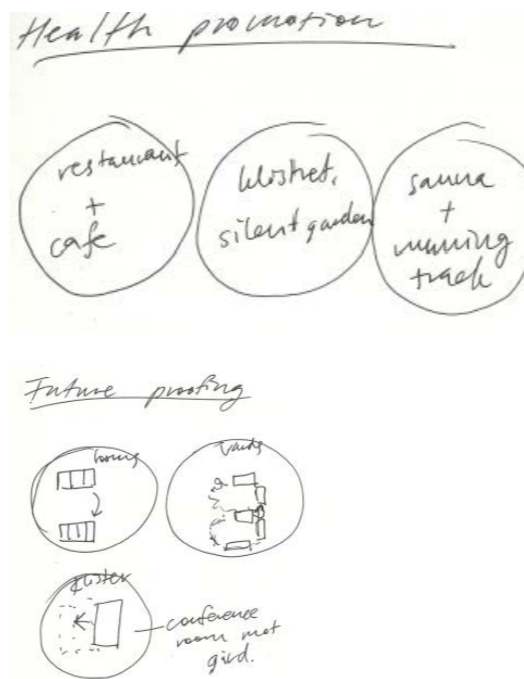 Health promotion
restaurant
+
cafe
klostret,
silent garden
sauna
+
running
track
Future proofing
conference
room mot
gård.